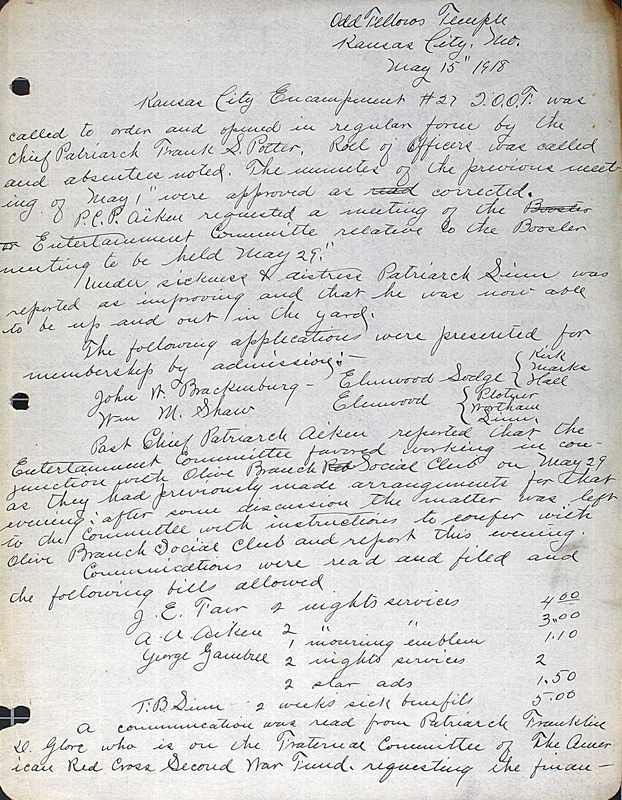 Odd Fellows Temple
Kansas City, Mo.
May 15" 1918
Kansas City Encampment #27 I.O.O.F. was
called to order and opened in regular form by the
Chief Patriarch Frank S. Potter. Roll of Officers was called
and absenties noted. The minutes of the previous meet-
ing of May 1" were approved as read corrected.
P.C.P. Aiken requested a meeting of the Booster
or Entertainment Committe relative to the Booster
meeting to be held May 29."
Under sickness & distress Patriarch Sinn was
reported as improving and that he was now able
to be up and out in the yard.
The following applications were presented for
membership by admission:-
John W. Brackenburg - Elmwood Lodge { Kirk
Marks
Hall
Wm M. Shaw Elmwood { Plotner
Wortham
Sinn.
Past Chief Patriarch Aiken reported that the
Entertainment Committee favored working in con-
junction with Olive Branch Social Club on May 29
as they had previously made arrangements for that
evening: after some discussion the matter was left
to the Committee with instructions to confer with
Olive Branch Social Club and report this evening.
Communications were read and filed and
the following bills allowed
J. E. Tarr 2 nights services 4.00
A. A. Aiken 2 " " 3.00
1 mourning emblem 1.10
George Gambrel 2 nights services 2
2 star ads 1.50
T. B. Sinn - 2 weeks sick benefits 5.00
A communication was read from Patriarch Franklin
D. Glore who is on the Fraternal Committee of The Amer
ican Red Cross Second War Fund. requesting the finan-